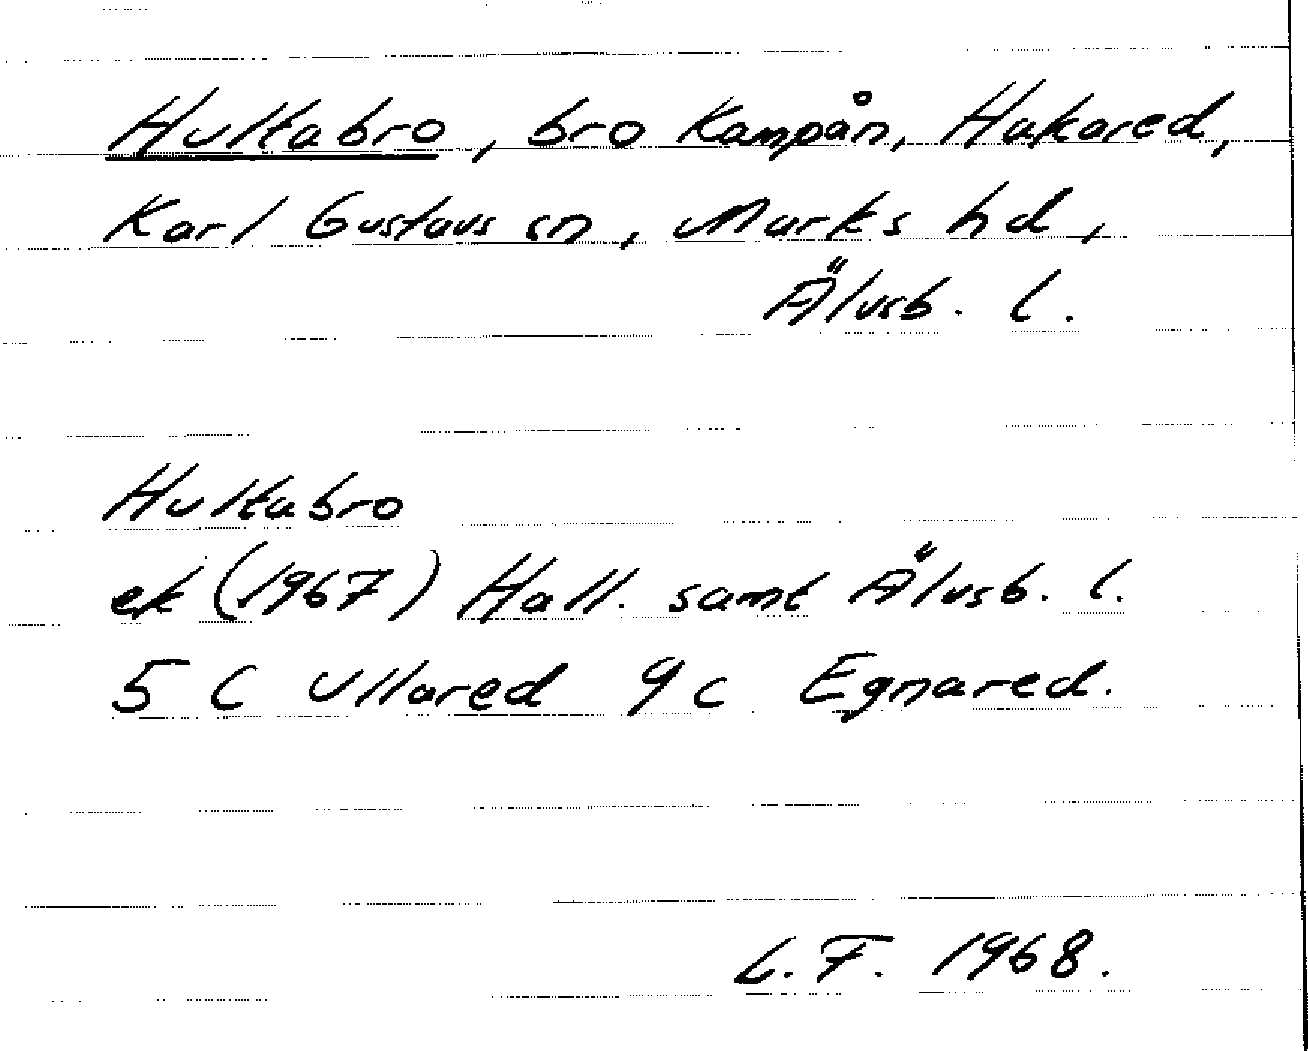 Hultabro, bro Kampån, Hakared,
Karl Gustavs sn, Marks hd,
Älvsb. l.
Hultabro
ek (1967) Hall. samt Älvsb. l.
5 C Ullared 9 c Egnared.
L.F. 1968.